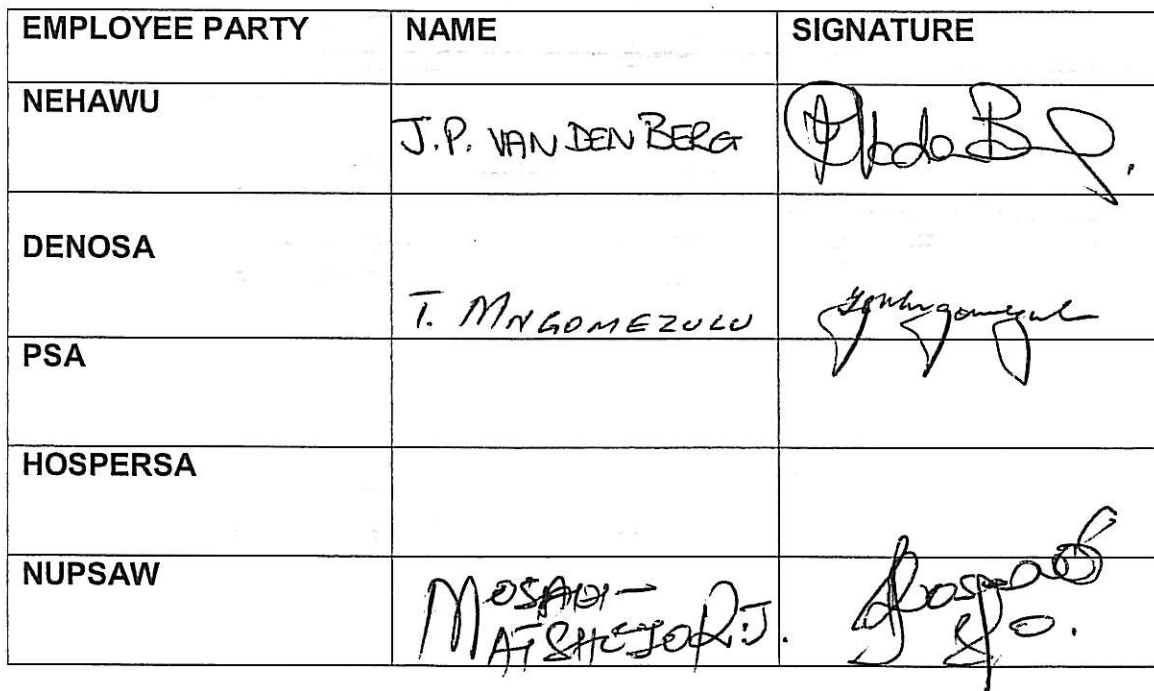 EMPLOYEE PARTY NAME SIGNATURE
NEHAWU J.P. VAN DEN BERG
DENOSA T. MNGOMEZULU
PSA
HOSPERSA
NUPSAW